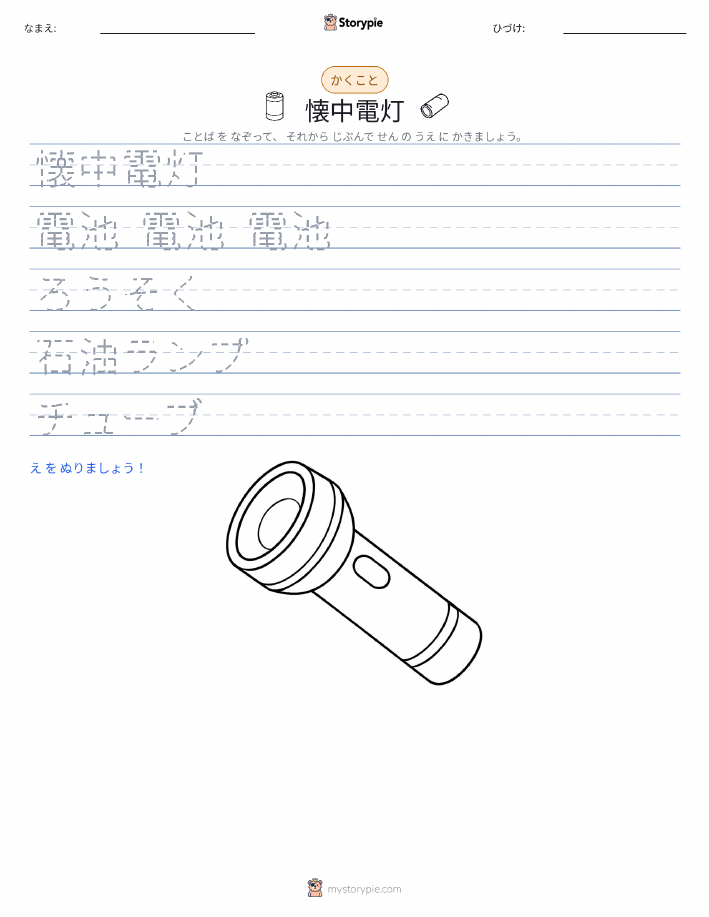 なまえ:
Storypie
ひづけ:
かくこと
懐中電灯
ことば を なぞって、 それから じぶんで せん の うえ に かきましょう。
懐中電灯
電池 電池 電池
ろうそく
石油ランプ
チューブ
え を ぬりましょう！
mystorypie.com